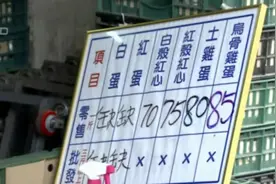 項目 白蛋 紅蛋 白殼紅心 紅殼紅心 土雞蛋 烏骨雞蛋
零售 一斤 缺 缺 70 75 80 85
批發 缺 缺 × × × ×